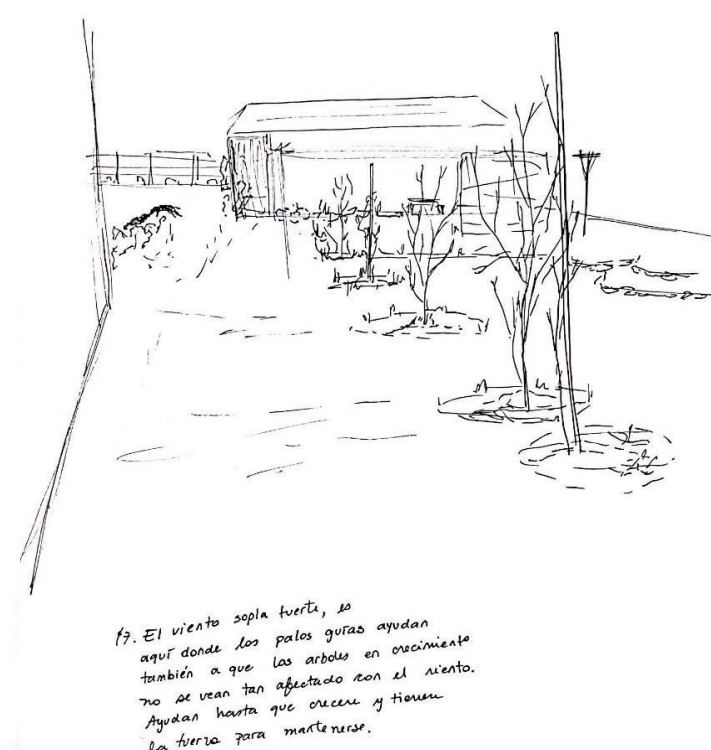 17. El viento sopla fuerte, es
aquí donde los palos guías ayudan
también a que los arboles en crecimiento
no se vean tan afectado con el viento.
Ayudan hasta que crecen y tienen
la fuerza para mantenerse.